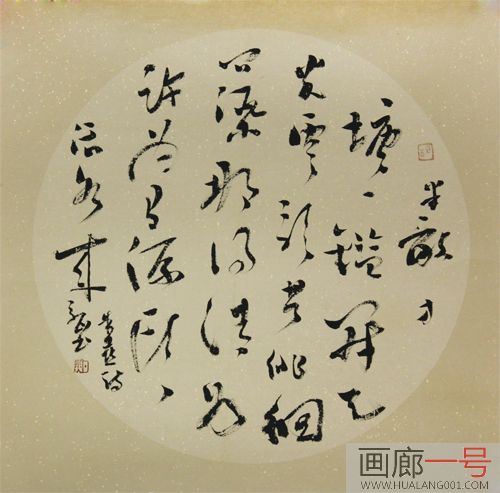 半畝方
塘一鑑開天
光雲影共徘徊
问渠那得清如
許为有源头
活水来
朱熹诗
画廊一号
WWW.HUALANG001.COM